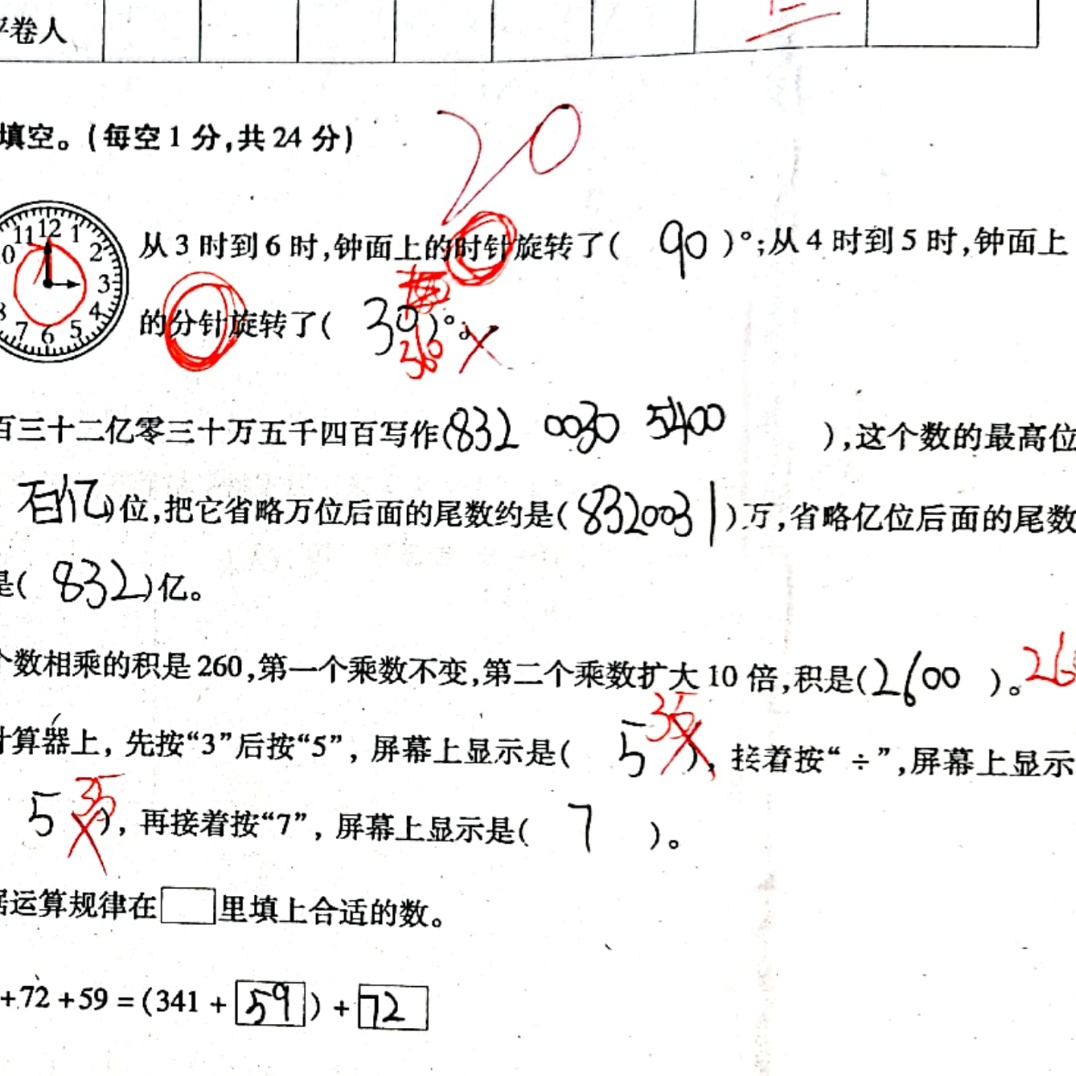 卷人
填空。(每空1分,共24分)
20
11 12 1 2 3 4 5 6 7 8 0
从3时到6时,钟面上的时针旋转了( 90 )°;从4时到5时,钟面上
的分针旋转了( 30 )°。
360
百三十二亿零三十万五千四百写作(832 0030 5400 ),这个数的最高位
百亿)位,把它省略万位后面的尾数约是(8320031)万,省略亿位后面的尾数
是( 832)亿。
个数相乘的积是260,第一个乘数不变,第二个乘数扩大10倍,积是(2600 )。26
计算器上,先按“3”后按“5”,屏幕上显示是( 5 35 ),接着按“÷”,屏幕上显示
5 35 ),再接着按“7”,屏幕上显示是( 7 )。
据运算规律在□里填上合适的数。
+72+59=(341+59)+72